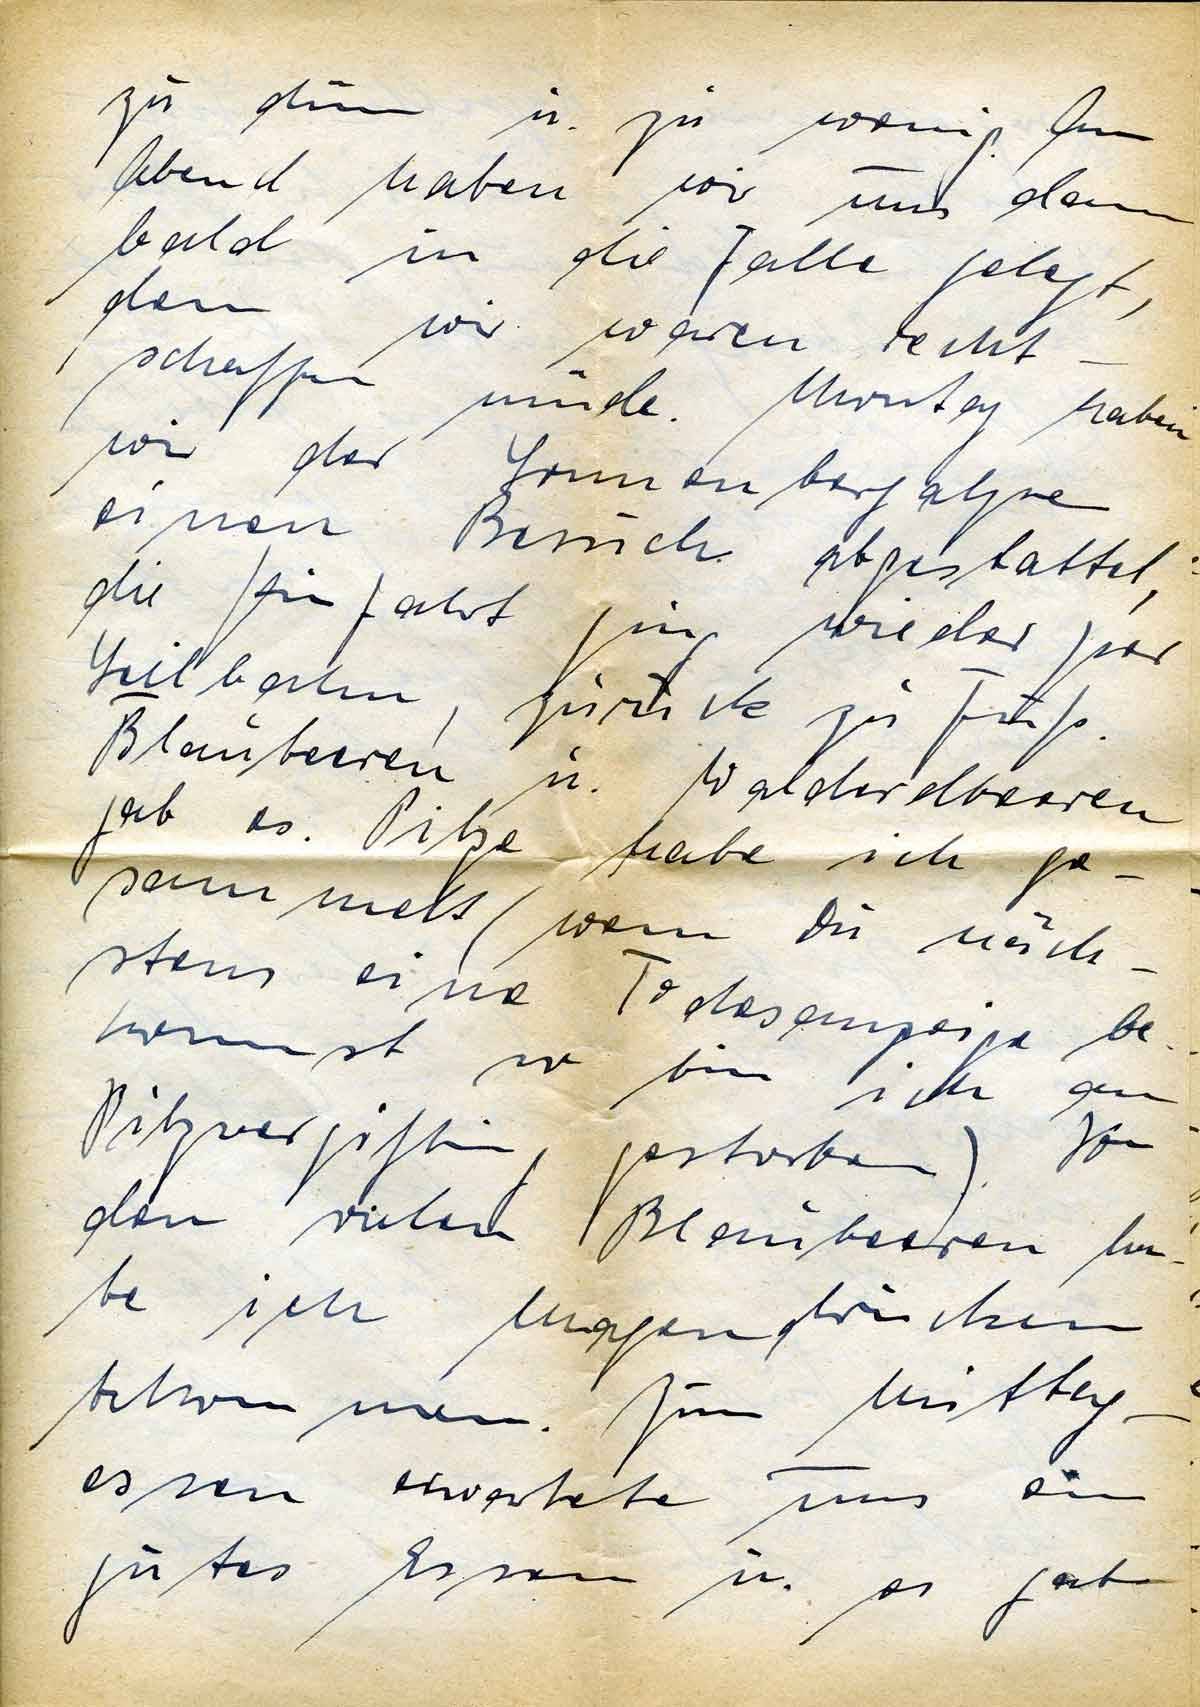 zu dünn u. zu wenig. Am
Abend haben wir uns dann
bald in die Falle gelegt,
denn wir waren recht-
schaffen müde. Montag haben
wir der Sonnenbergalpe
einen Besuch abgestattet,
die Hinfahrt ging wieder per
Seilbahn, zurück zu Fuß.
Blaubeeren u. Walderdbeeren
gab es. Pilze habe ich ge-
sammelt (wenn Du näch-
stens eine Todesanzeige be-
kommst so bin ich an
Pilzvergiftung gestorben). Von
den vielen Blaubeeren ha-
be ich Magendrücken
bekommen. Zum Mittag-
essen erwartete uns ein
gutes Essen u. es gab